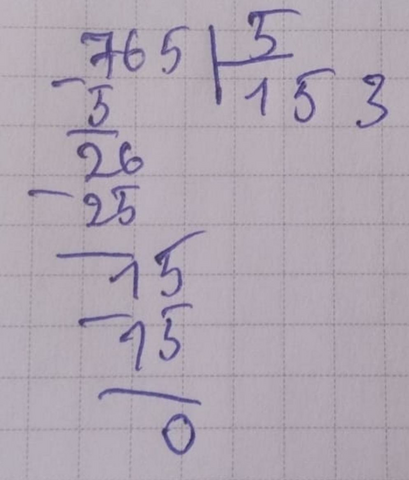 765 | 5
- 5 153
26
- 25
15
- 15
0